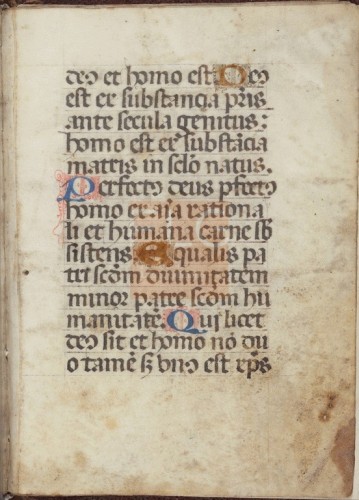 deo et homo est Deo
est ex substancia pr̄is
ante secula genitus:
homo est ex substācia
matris in sclo natus.
Perfecto deus p̄fecto
homo ex aīa rationa
li et humana carne sb
sistens. Equalis pa
tri scd̄m diuinitatem
minor patre scd̄m hu
manitatē. Qui licet
deo sit et homo nō du
o tamē sʒ vnꝰ est xp̄s